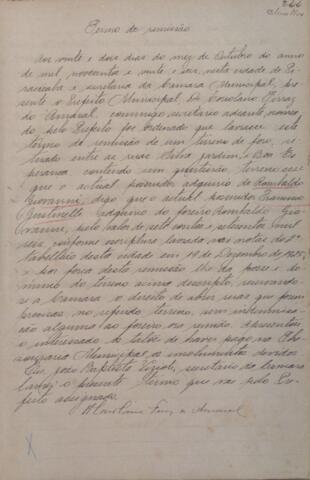 266
Termo de remissão
Aos vinte e dois dias do mez de Outubro do anno
de mil, novecentos e vinte e seis, nesta cidade de Pi-
racicaba e secretaria da Camara Municipal, pre-
sente o Prefeito Municipal, Dr. Coriolano Ferraz
do Amaral, commigo secretario adeante, nomea-
do, pelo Prefeito foi ordenado que lavrasse este
termo de remissão de um terreno de foro, si-
tuado entre as ruas Silva Jardim, e Boa Es-
perança contendo um quarteirão, terreno esse
que o actual possuidor adquirio de Romualdo
Giovanni, digo que o actual possuidor Francisco
Gustinelli adquirio do foreiro Romualdo Gio-
vanni, pelo valor de sete contos e setecentos mil
reis, conforme escriptura lavrada, nas notas do 2º
tabellião desta cidade em 19 de Dezembro de 1925,
e por força desta remissão lhe dá posse e do-
minio do terreno acima descripto, reservando-
se a Camara o direito de abrir ruas que forem
precisas no referido terreno, sem indemnisa-
ção alguma ao foreiro ora remido. Apresentou
o interessado o talão de haver pago na The-
souraria Municipal, os emolumentos devidos
Eu, João Baptista Vizioli, secretario da Camara
lavrei o presente termo que vai pelo Pre-
feito assignado.
Coriolano Ferraz do Amaral
X